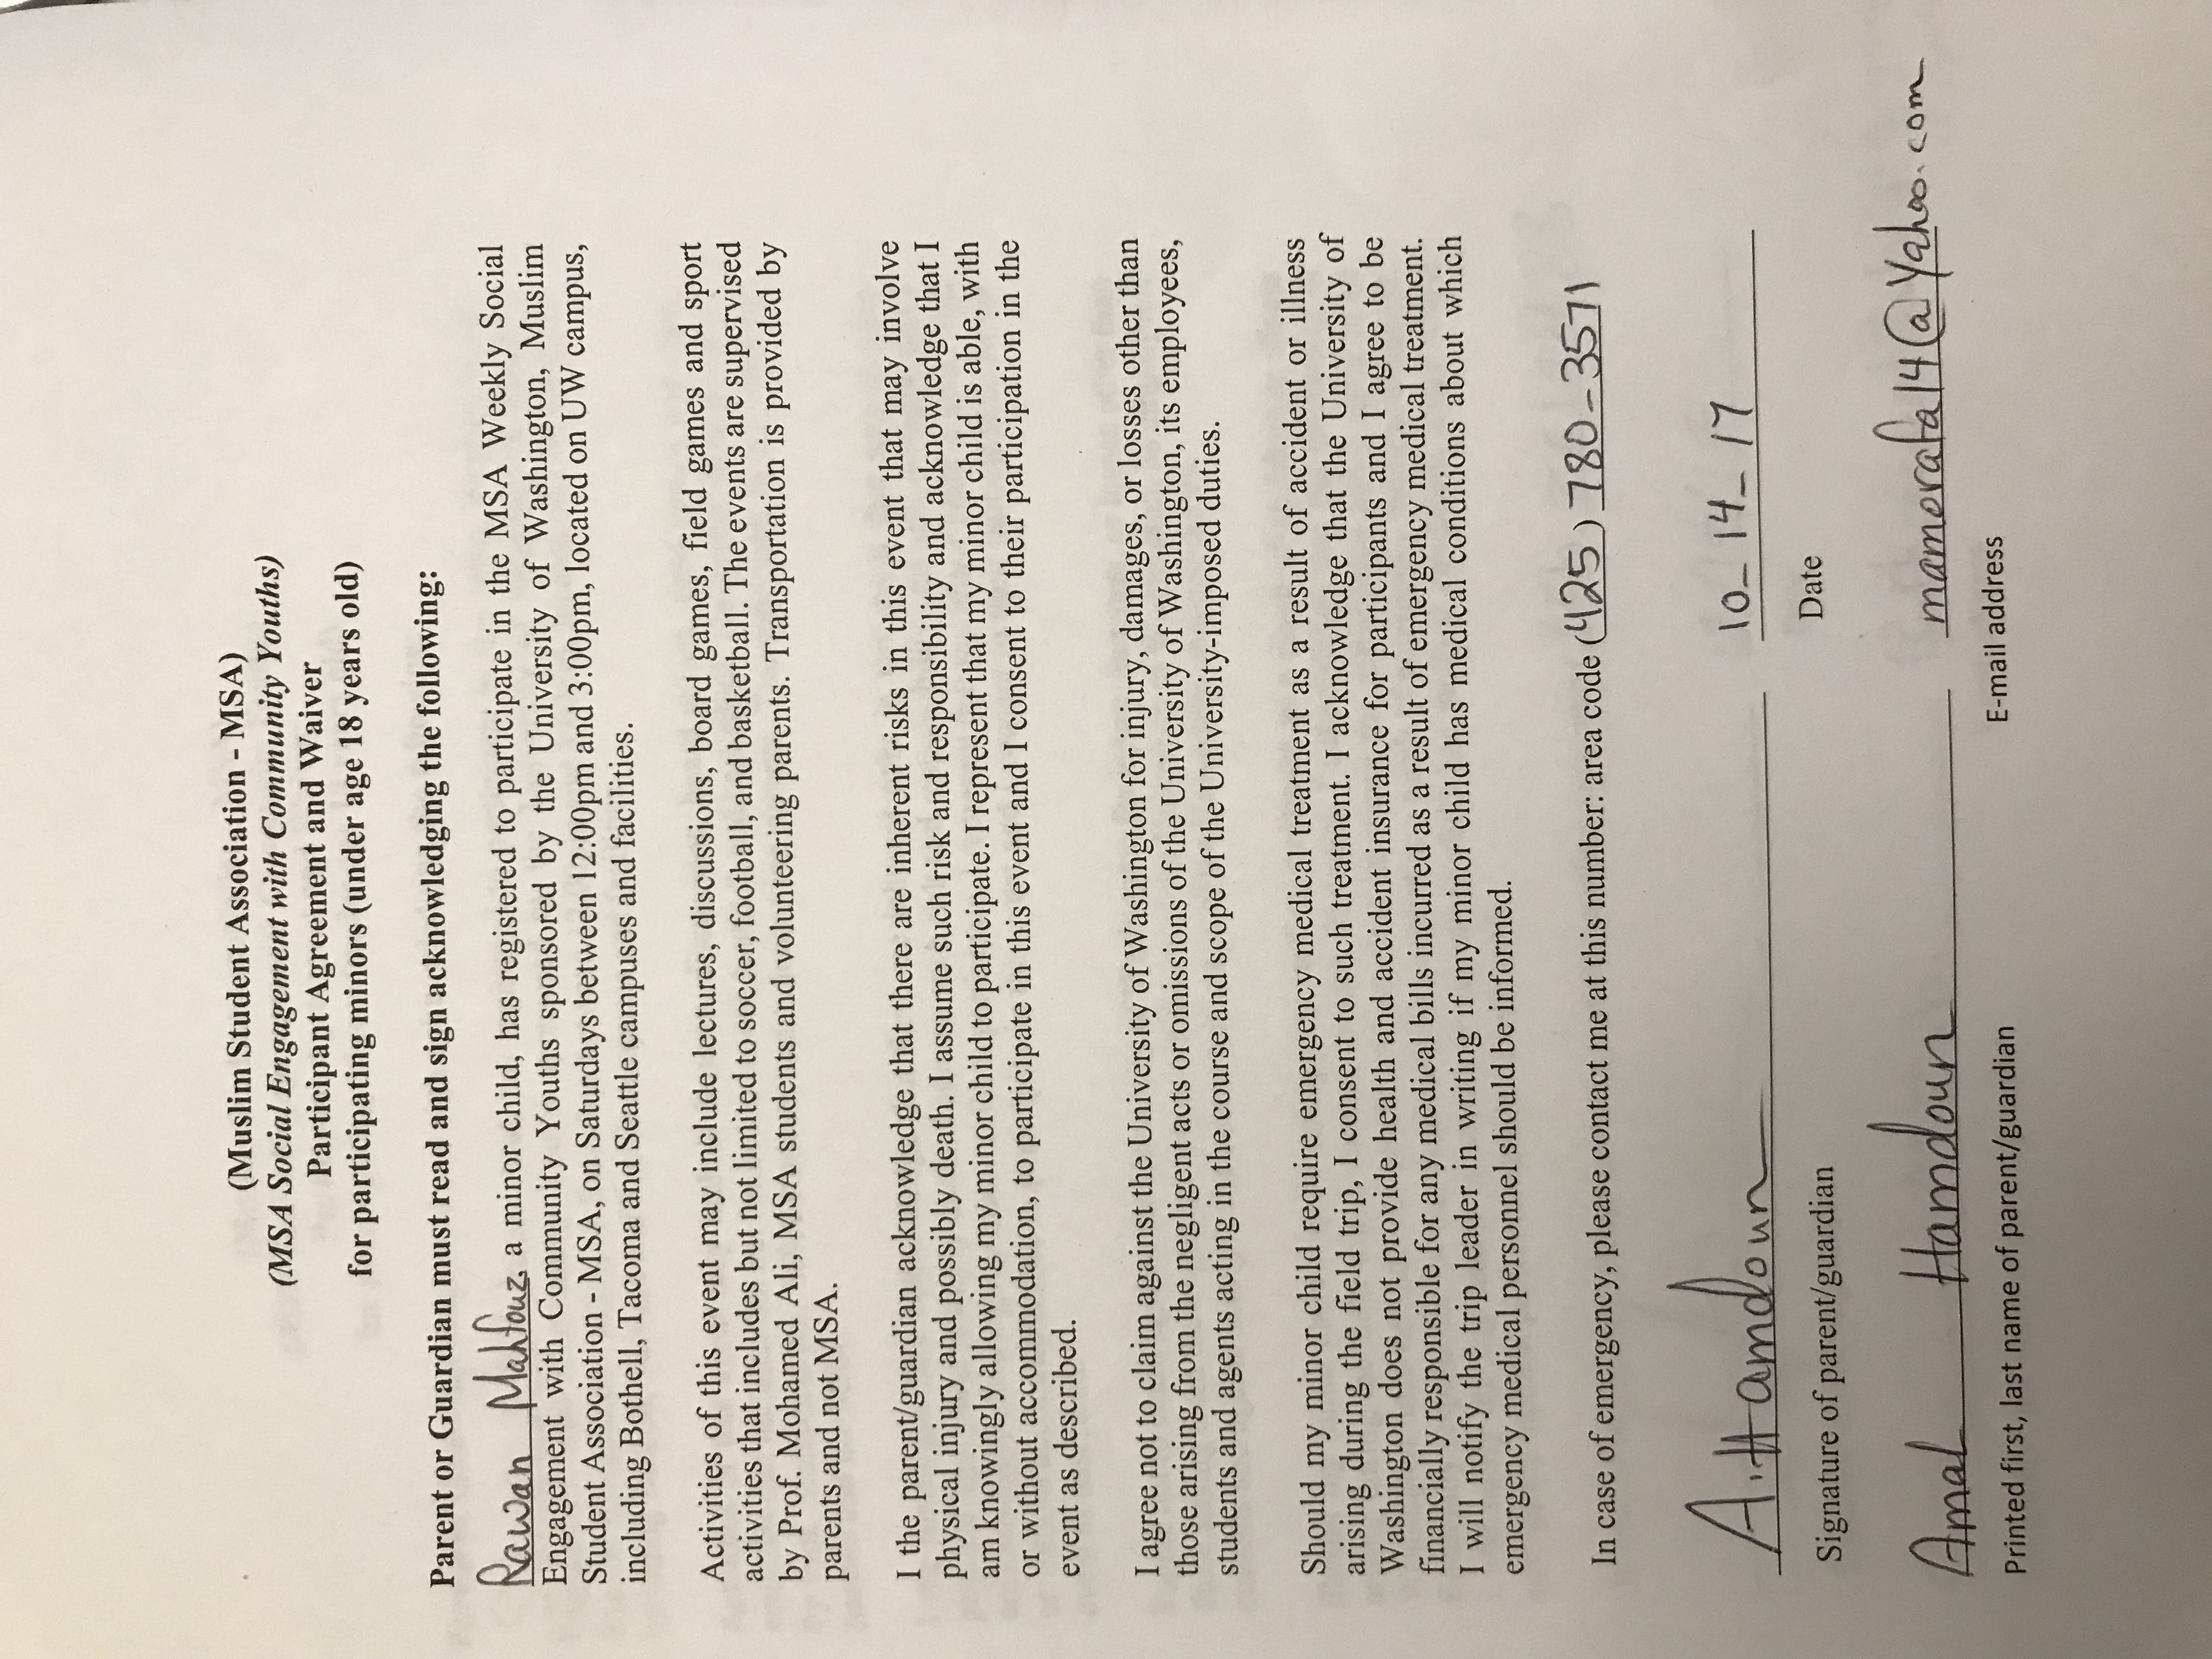 (Muslim Student Association - MSA)
(MSA Social Engagement with Community Youths)
Participant Agreement and Waiver
for participating minors (under age 18 years old)
Parent or Guardian must read and sign acknowledging the following:
Rawan Mahfouz, a minor child, has registered to participate in the MSA Weekly Social
Engagement with Community Youths sponsored by the University of Washington, Muslim
Student Association - MSA, on Saturdays between 12:00pm and 3:00pm, located on UW campus,
including Bothell, Tacoma and Seattle campuses and facilities.
Activities of this event may include lectures, discussions, board games, field games and sport
activities that includes but not limited to soccer, football, and basketball. The events are supervised
by Prof. Mohamed Ali, MSA students and volunteering parents. Transportation is provided by
parents and not MSA.
I the parent/guardian acknowledge that there are inherent risks in this event that may involve
physical injury and possibly death. I assume such risk and responsibility and acknowledge that I
am knowingly allowing my minor child to participate. I represent that my minor child is able, with
or without accommodation, to participate in this event and I consent to their participation in the
event as described.
I agree not to claim against the University of Washington for injury, damages, or losses other than
those arising from the negligent acts or omissions of the University of Washington, its employees,
students and agents acting in the course and scope of the University-imposed duties.
Should my minor child require emergency medical treatment as a result of accident or illness
arising during the field trip, I consent to such treatment. I acknowledge that the University of
Washington does not provide health and accident insurance for participants and I agree to be
financially responsible for any medical bills incurred as a result of emergency medical treatment.
I will notify the trip leader in writing if my minor child has medical conditions about which
emergency medical personnel should be informed.
In case of emergency, please contact me at this number: area code (425) 780-3571
A.Hamdoun 10-14-17
Signature of parent/guardian Date
Amal Hamdoun mamorafa14@Yahoo.com
Printed first, last name of parent/guardian E-mail address